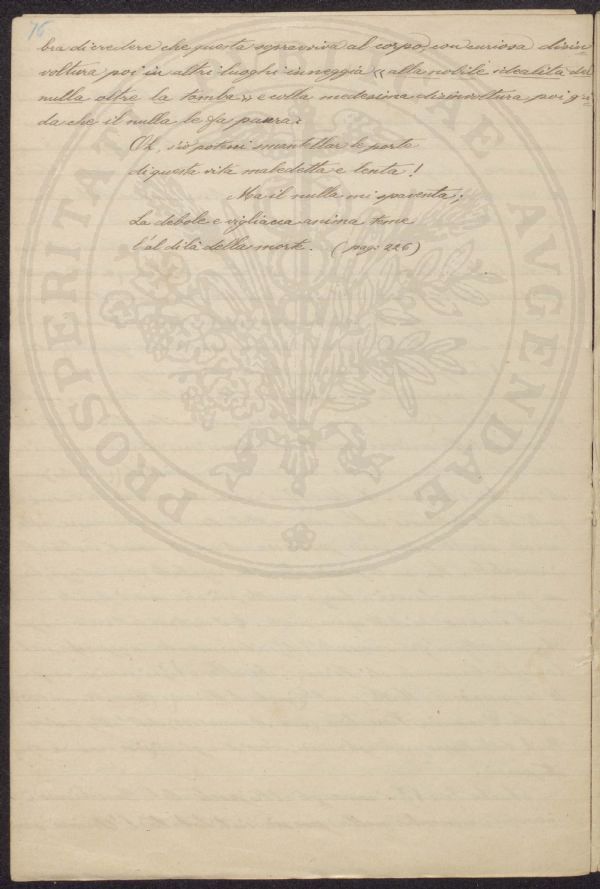 76
bra di credere che questa sopravviva al corpo, con curiosa disin
voltura poi in altri luoghi inneggia «alla nobile idealità del
nulla oltre la tomba» e colla medesima disinvoltura poi gri
da che il nulla le fa paura:
Oh, s'io potessi smantellar le porte
di questa vita maledetta e lenta!
Ma il nulla mi spaventa;
La debole e vigliacca anima teme
l'al di là della morte. (pag: 226)
PROSPERITATI PUBLICAE AVGENDAE